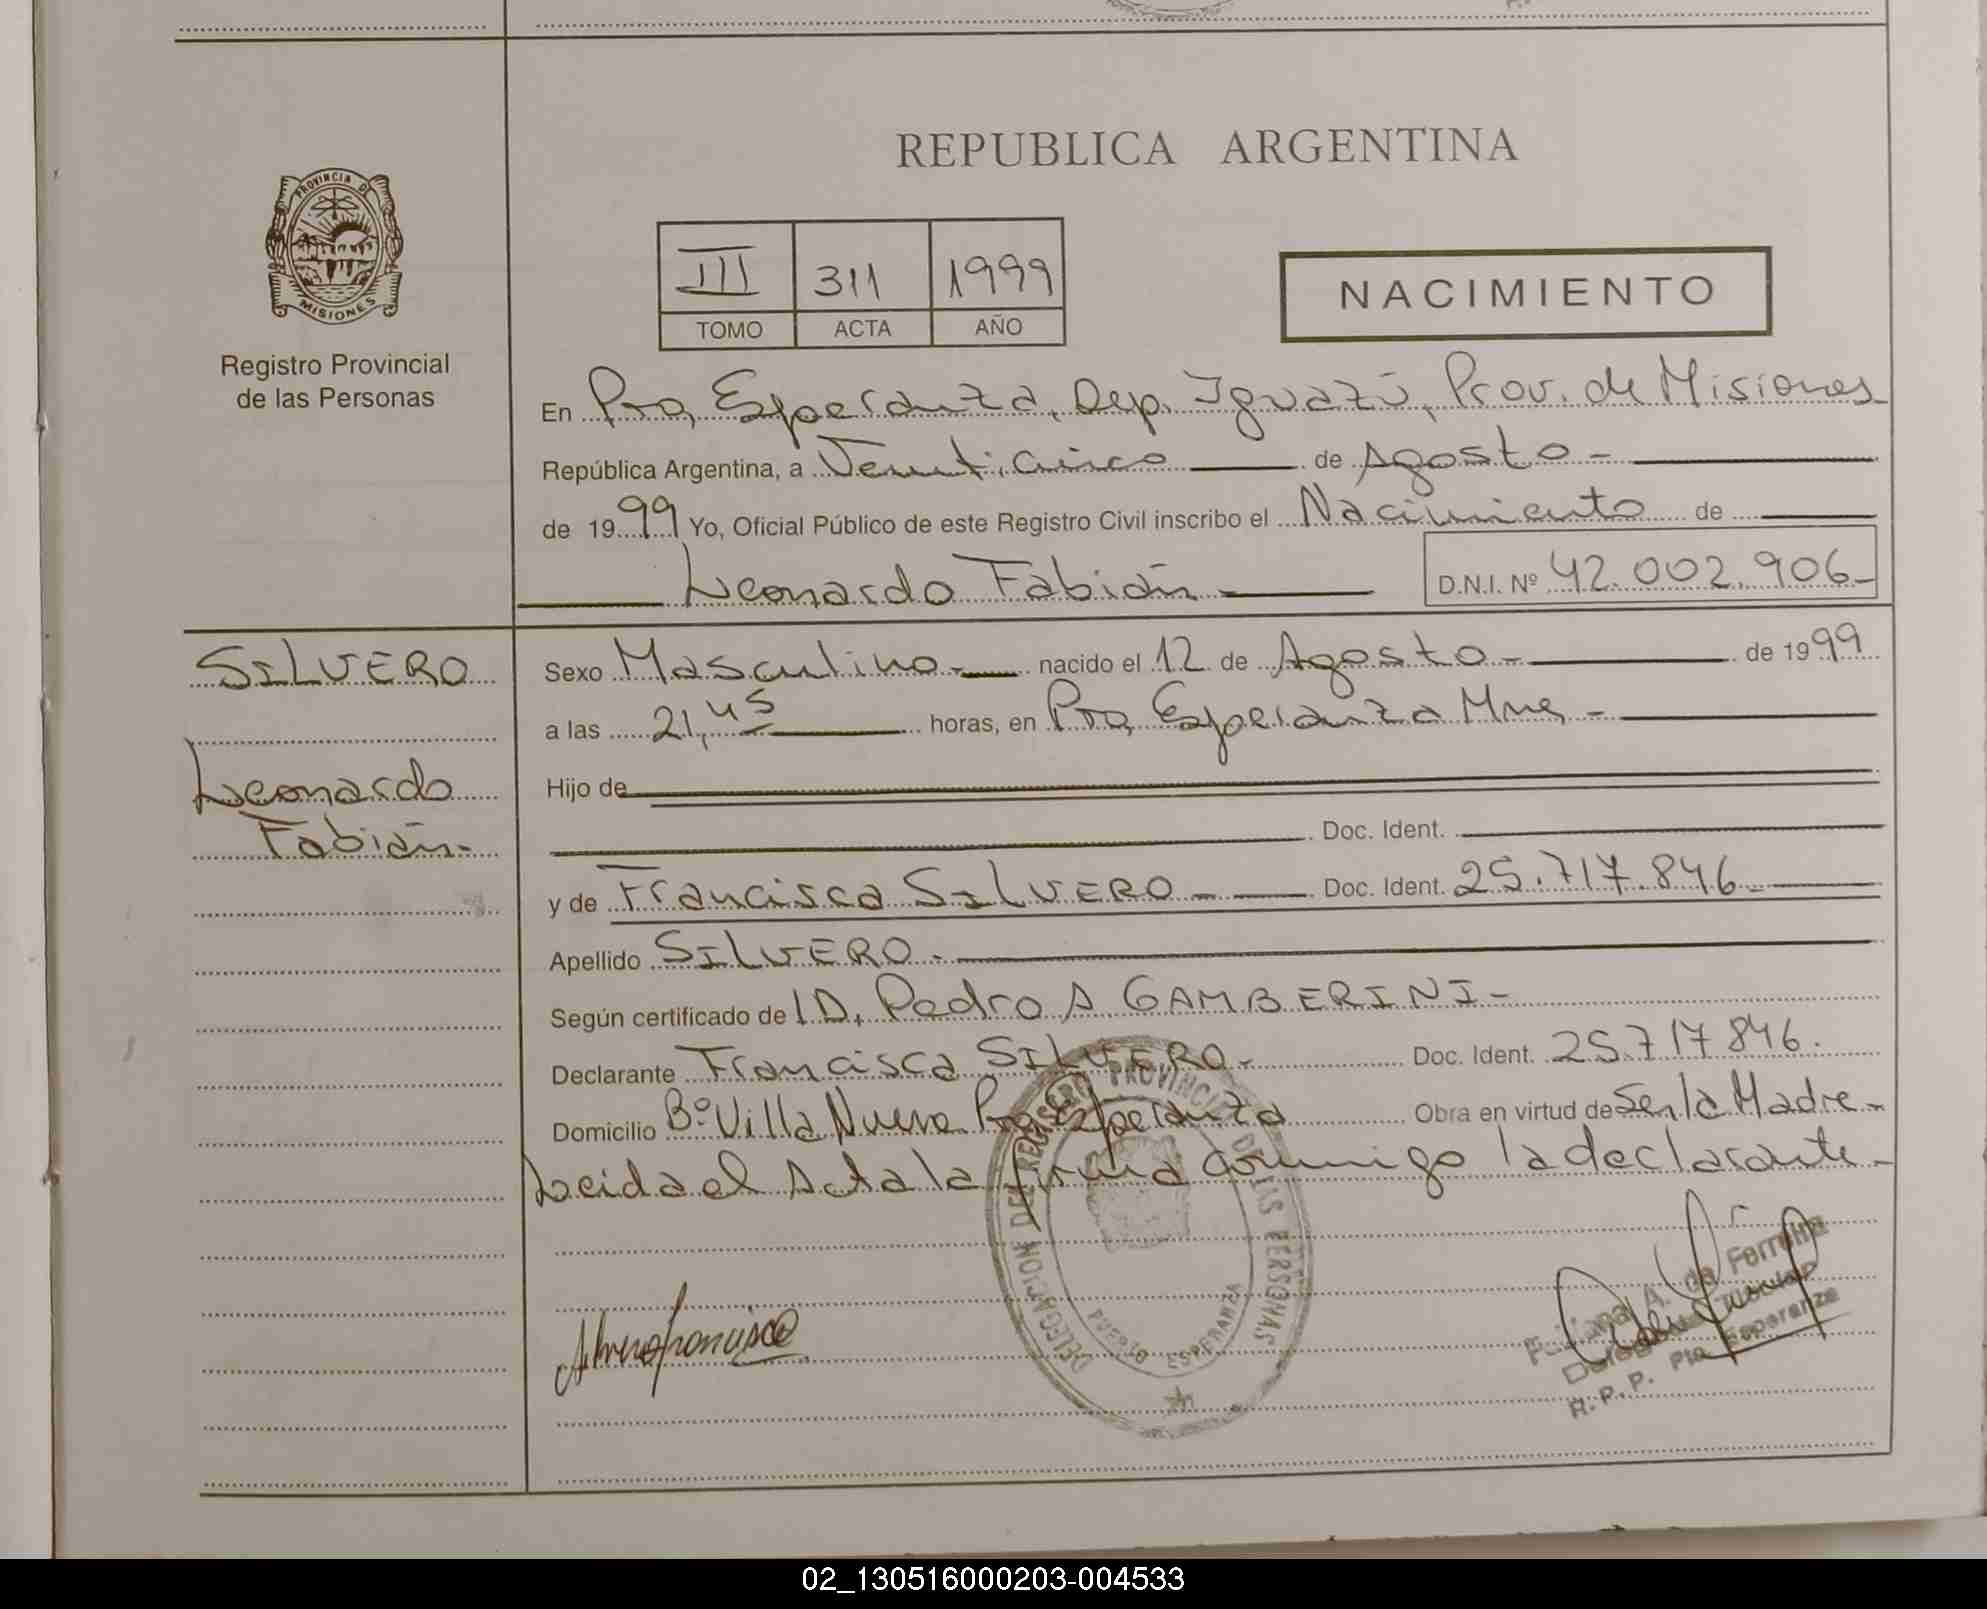 REPUBLICA ARGENTINA
PROVINCIA DE
MISIONES
Registro Provincial
de las Personas
III 311 1999
TOMO ACTA AÑO
NACIMIENTO
En Pto, Esperanza, Dep. Iguazú, Prov. de Misiones
República Argentina, a Veinticinco de Agosto -
de 1999 Yo, Oficial Público de este Registro Civil inscribo el Nacimiento de
Leonardo Fabián - D.N.I. Nº 42.002.906-
SILVERO
Leonardo
Fabián-
Sexo Masculino- nacido el 12 de Agosto - de 1999
a las 21,45 horas, en Pto, Esperanza Mnes -
Hijo de
Doc. Ident.
y de Francisca SILVERO - Doc. Ident. 25.717.846-
Apellido SILVERO -
Según certificado de ID. Pedro A GAMBERINI -
Declarante Francisca SILVERO - Doc. Ident. 25.717.846.
Domicilio Bº Villa Nueva Pto Esperanza Obra en virtud de Ser la Madre-
Leida el Acta la firma conmigo la declarante-
DELEGACION DEL REGISTRO PROVINCIAL DE LAS PERSONAS
PUERTO ESPERANZA
A. de Ferreira
R.P.P. Pto Esperanza
02_130516000203-004533